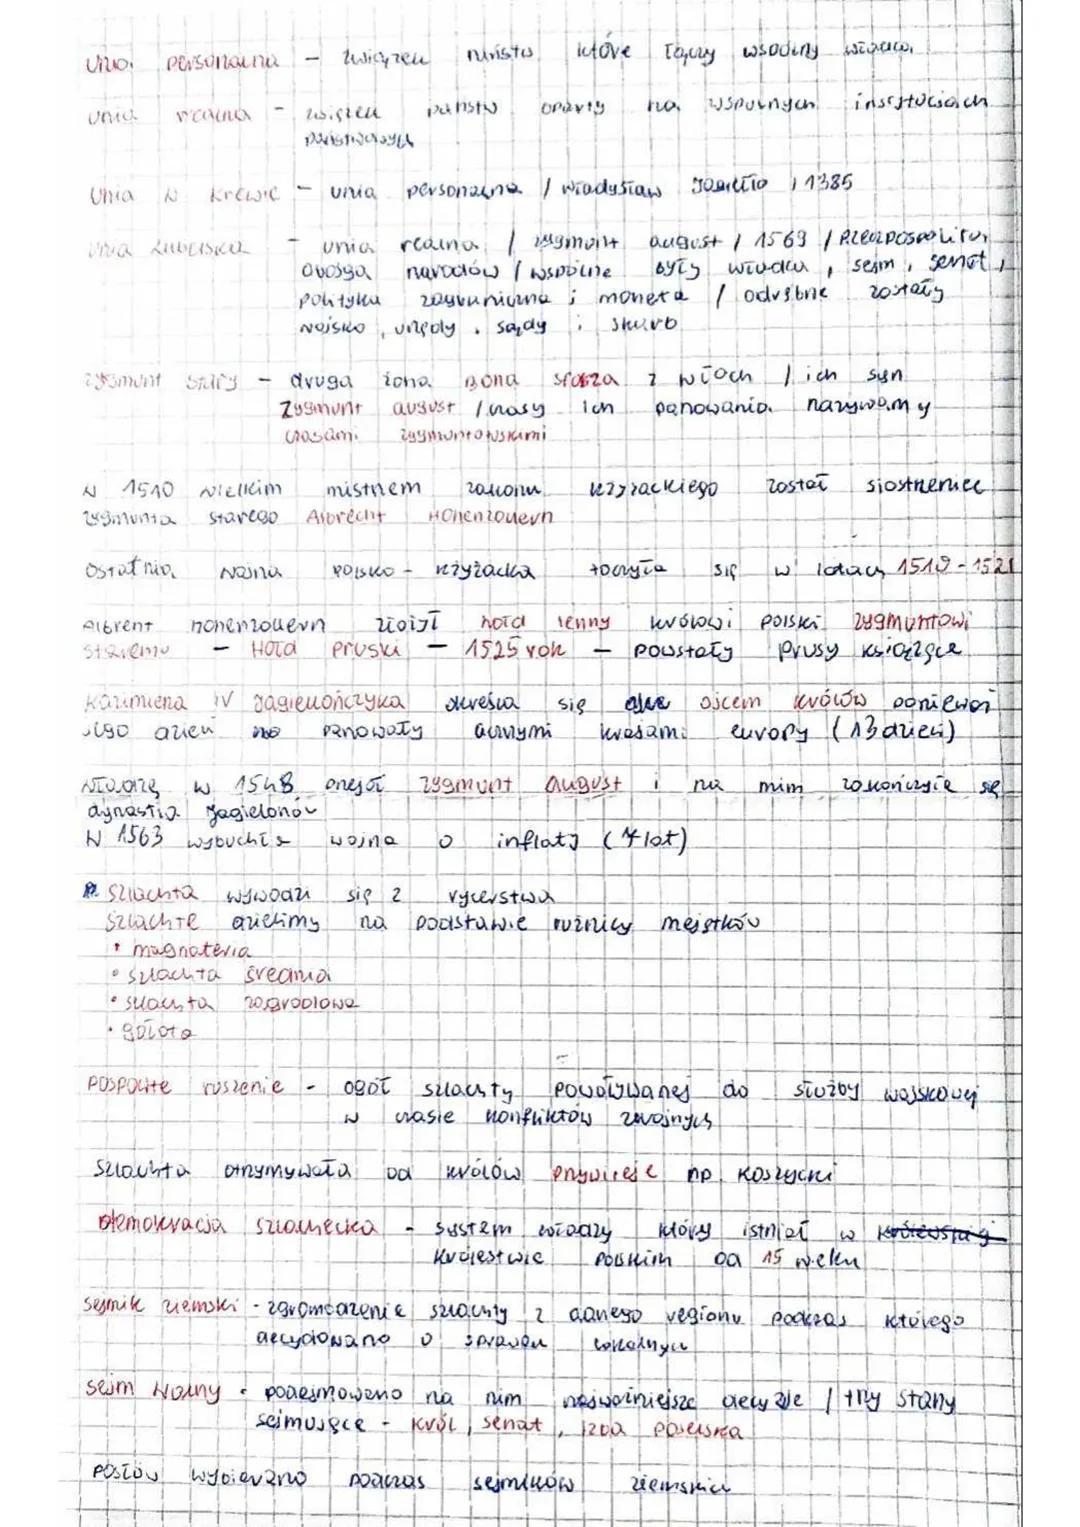 unia personalna - związek państw które łączy wspólny władca
unia realna - związek państw oparty na wspólnych instytucjach
państwowych
Unia w Krewie - unia personalna / Władysław Jagiełło / 1385
unia Lubelska - unia realna / Zygmunt august / 1569 / Rzeczpospolita
Obojga narodów / wspólne były władca, sejm, senat,
polityka zagraniczna i moneta / odrębne zostały
wojsko, urzędy, sądy i skarb
Zygmunt Stary - druga żona Bona Sforza z włoch / ich syn
Zygmunt august / czasy ich panowania nazywamy
czasami zygmuntowskimi
W 1510 wielkim mistrzem zakonu krzyżackiego został siostrzeniec
Zygmunta starego Albrecht Hohenzollern
Ostatnia wojna polsko - krzyżacka toczyła się w latach 1519 - 1521
Albrent hohenzollern złożył hołd lenny królowi polski Zygmuntowi
Staremu - Hołd Pruski - 1525 rok - powstały Prusy Książęce
Kazimierza IV Jagiellończyka określa się ojcem królów ponieważ
jego dzieci panowały licznymi krajami europy (13 dzieci)
Władzę w 1548 przejął Zygmunt August i na nim zakończyła się
dynastia Jagielonów
W 1563 wybuchła wojna o inflaty (7 lat)
Szlachta wywodzi się z rycerstwa
Szlachtę dzielimy na podstawie różnicy majątków
• magnateria
• szlachta średnia
• szlachta zagrodowa
• gołota
Pospolite ruszenie - ogół szlachty powoływanej do służby wojskowej
w czasie konfliktów zbrojnych
Szlachta otrzymywała od królów przywileje np. Koszycki
demokracja szlachecka - system władzy który istniał w
królestwie Polskim od 15 wieku
Sejmik ziemski - zgromadzenie szlachty z danego regionu podczas którego
decydowano o sprawach lokalnych
Sejm Walny - podejmowano na nim najważniejsze decyzje / trzy stany
sejmujące - król, senat, izba poselska
Posłów wybierano podczas sejmików ziemskich